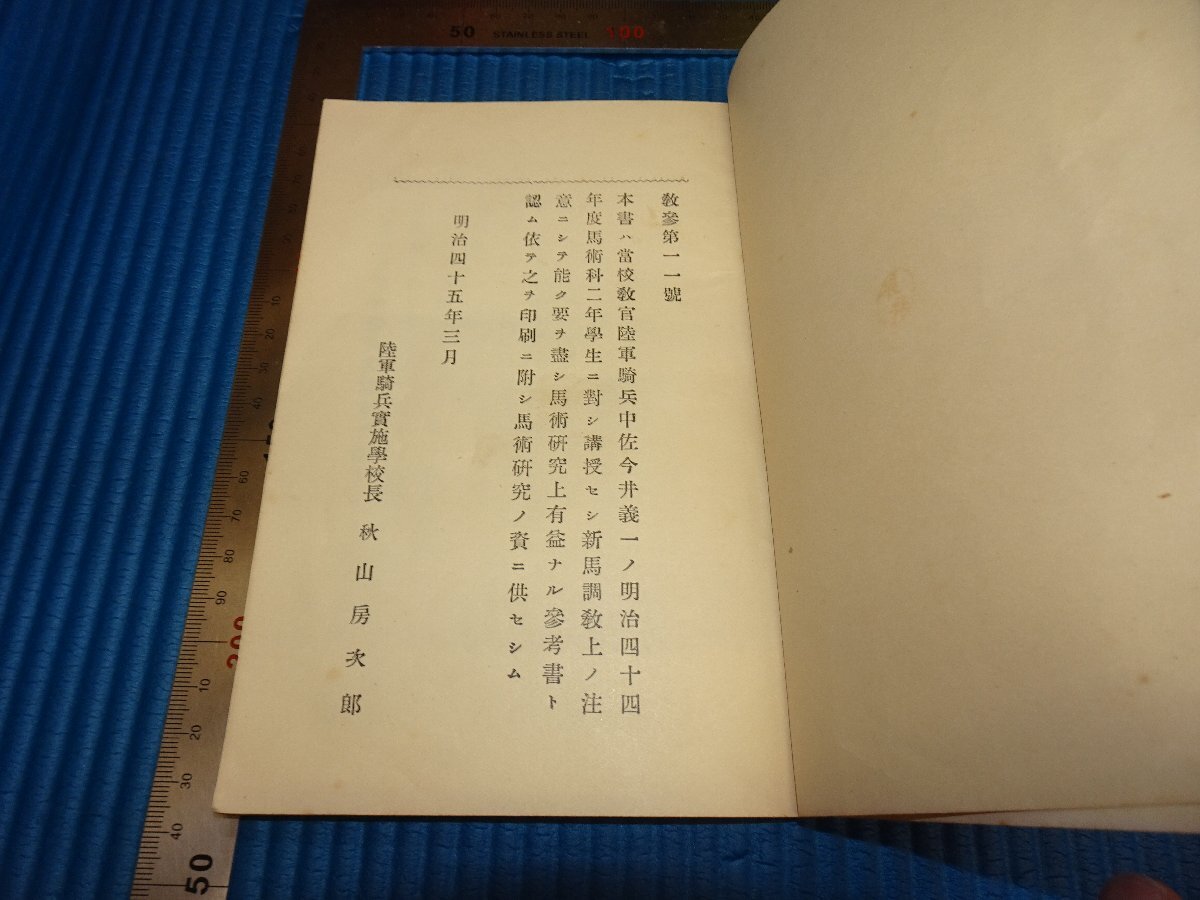 教參第一一號
本書ハ當校教官陸軍騎兵中佐今井義一ノ明治四十四
年度馬術科二年學生ニ對シ講授セシ新馬調教上ノ注
意ニシテ能ク要ヲ盡シ馬術硏究上有益ナル參考書ト
認ム依テ之ヲ印刷ニ附シ馬術硏究ノ資ニ供セシム
明治四十五年三月
陸軍騎兵實施學校長 秋山房次郎
50 STAINLESS STEEL 100
10
20
30
40
60
70
80
90
200
10
20
30
40
50